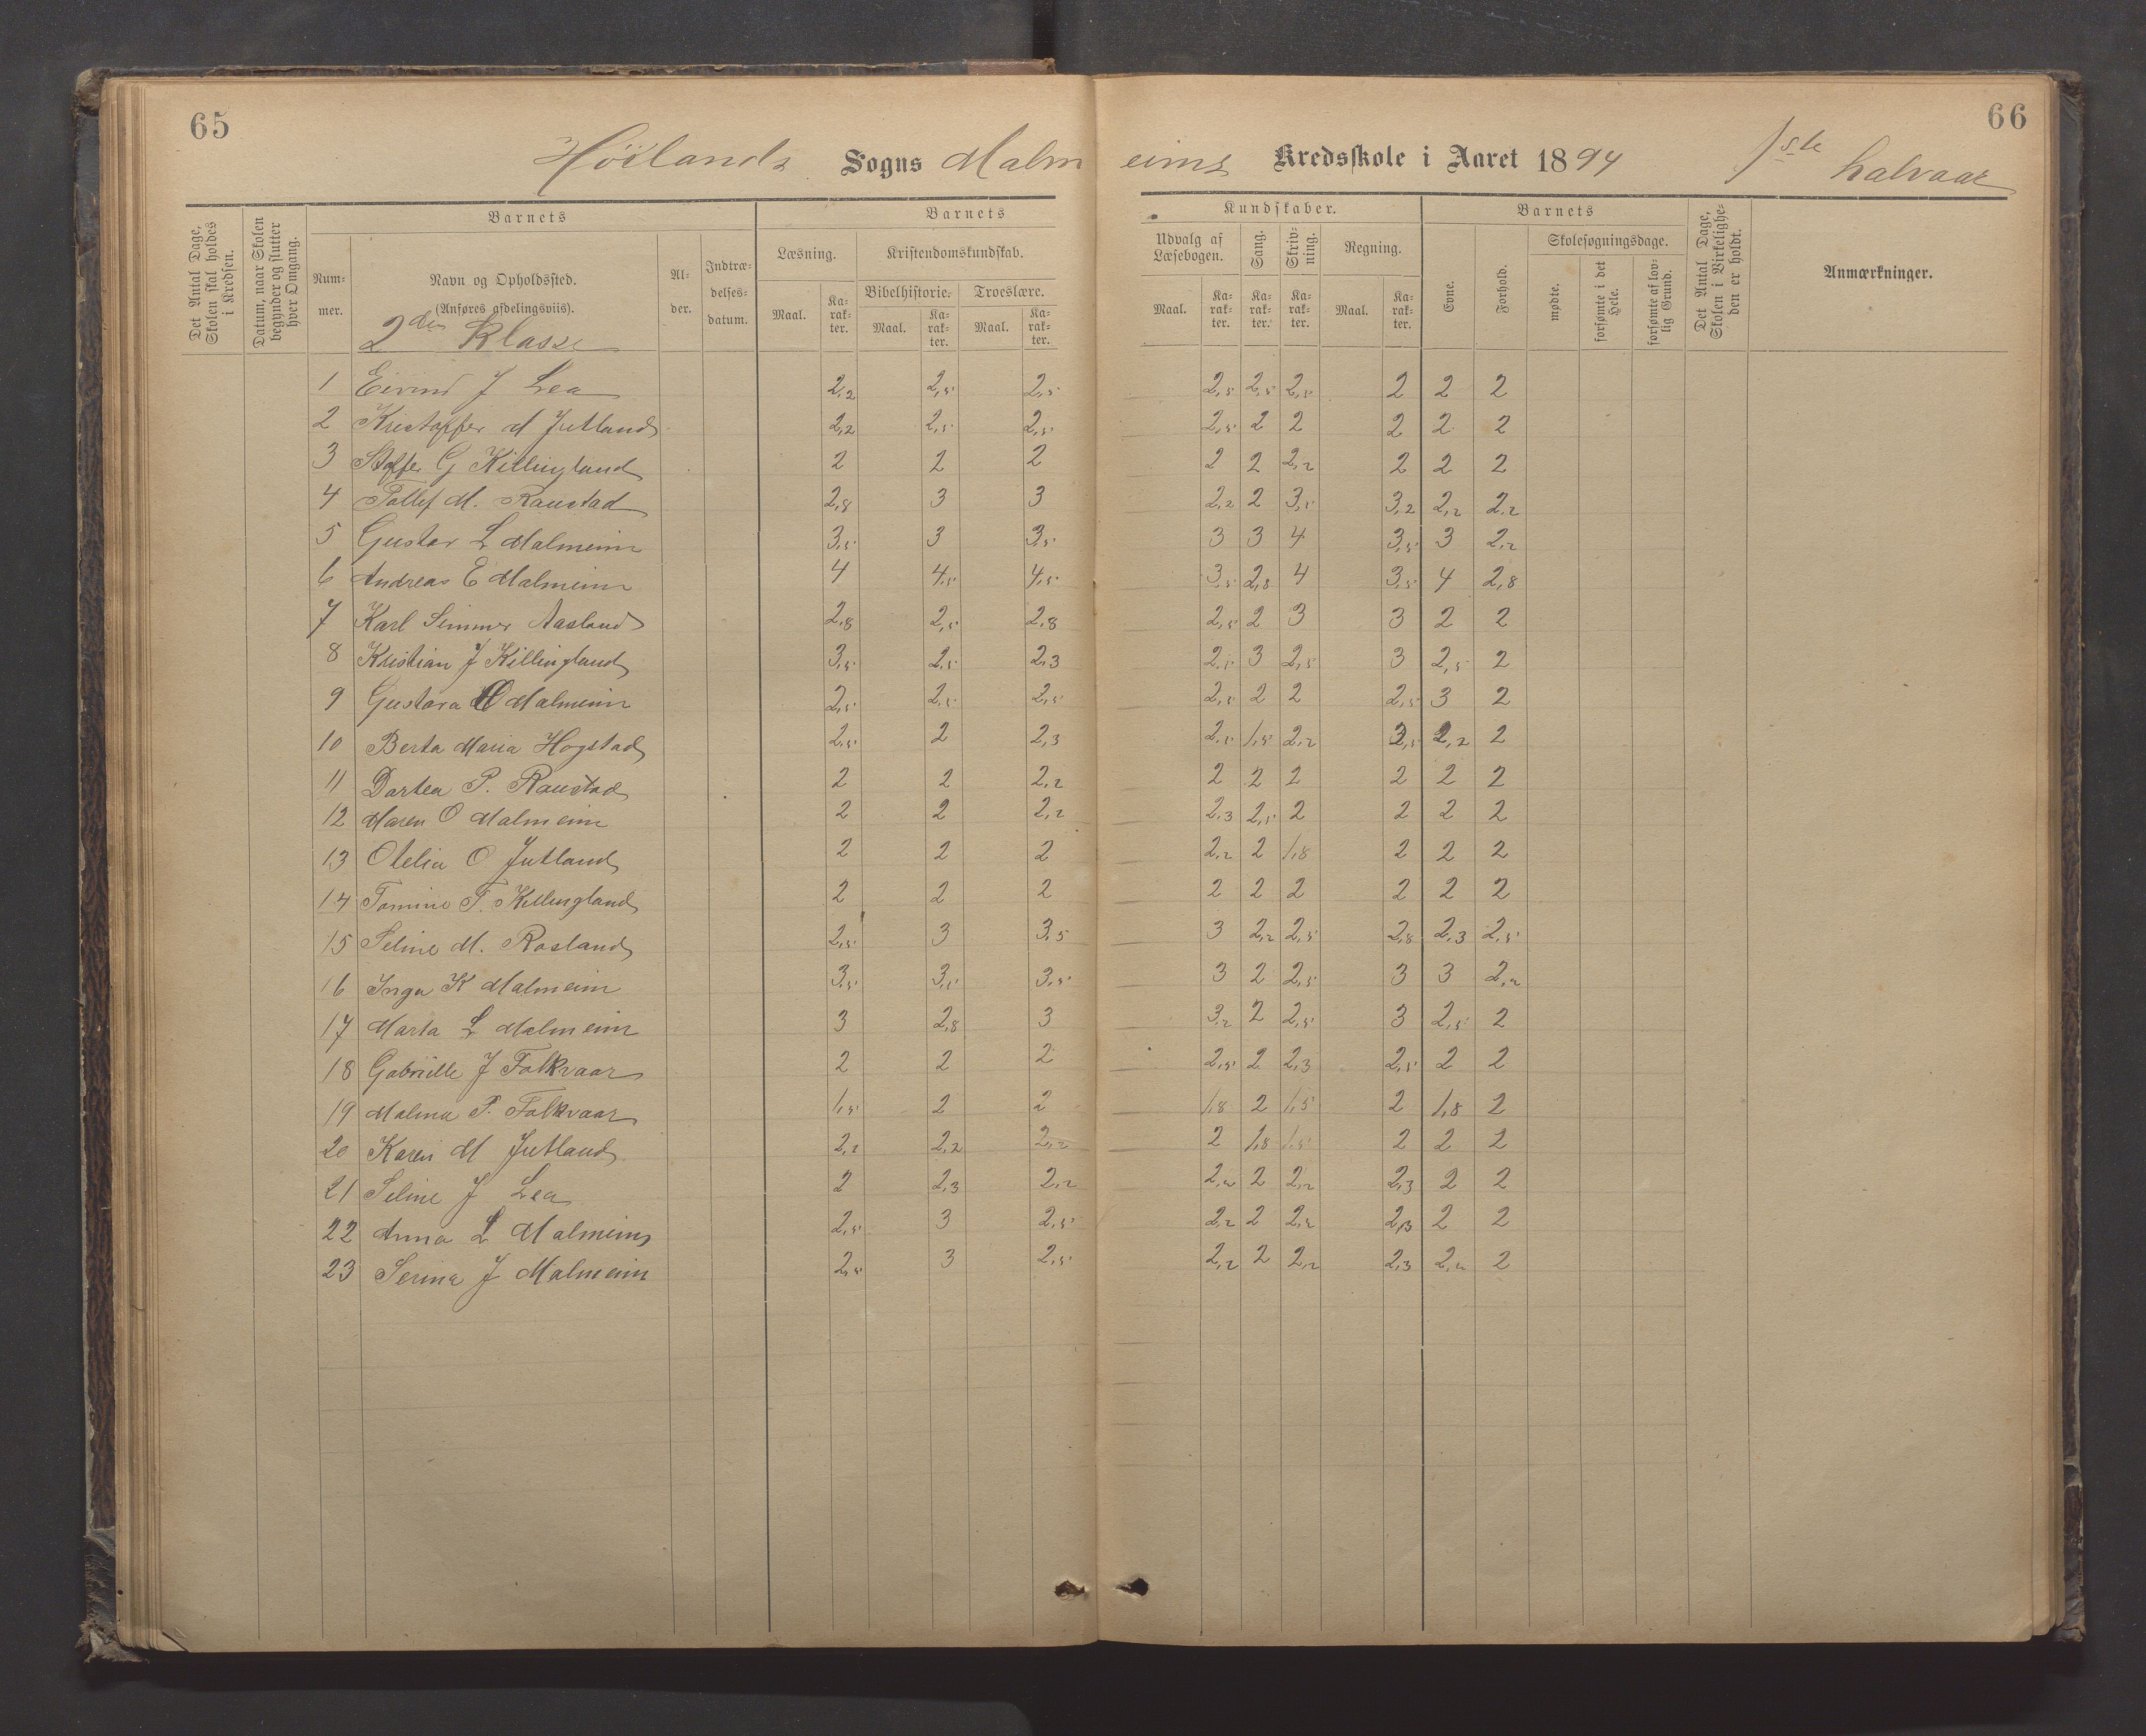 65
66
Höilands Sogns Malmeims Kredsskole i Aaret 1894 1ste halvaar
Det Antal Dage, Skolen skal holdes i Kredsen.
Datum, naar Skolen begynder og slutter hver Omgang.
Barnets
Nummer.
Navn og Opholdssted.
(Anføres afdelingsviis).
Alder.
Indtrædelsesdatum.
Barnets
Kundskaber.
Læsning.
Maal.
Karakter.
Kristendomskundskab.
Bibelhistorie.
Maal.
Karakter.
Troeslære.
Maal.
Karakter.
Udvalg af Læsebogen.
Maal.
Karakter.
Sang.
Karakter.
Skrivning.
Karakter.
Regning.
Maal.
Karakter.
Barnets
Evne.
Forhold.
Skolesøgningsdage.
mødte.
forsømte i det Hele.
forsømte af lovlig Grund.
Det Antal Dage, Skolen i Virkeligheden er holdt.
Anmærkninger.
2den Klasse
1 Eivind J Lea 2,2 2,5 2,5 2,5 2,5 2,5 2 2 2
2 Kristoffer M Jutland 2,2 2,5 2,5 2,5 2 2 2 2 2
3 Stoffer G Killingland 2 2 2 2 2 2,2 2 2 2
4 Tollef M. Raustad 2,8 3 3 2,2 2 3,5 3,2 2,2 2,2
5 Gustav L Malmeim 3,5 3 3,5 3 3 4 3,5 3 2,2
6 Andreas E Malmeim 4 4,5 4,5 3,5 2,8 4 3,5 4 2,8
7 Karl Simmer Aasland 2,8 2,5 2,8 2,5 2 3 3 2 2
8 Kristian J Killingland 3,5 2,5 2,3 2,5 3 2,5 3 2,5 2
9 Gustava O Malmeim 2,5 2,5 2,5 2,5 2 2 2,5 3 2
10 Berta Maria Hogstad 2,5 2 2,3 2,5 1,5 2,2 2,5 2,2 2
11 Dortea P. Raustad 2 2 2,2 2 2 2 2 2 2
12 Maren O Malmeim 2 2 2,2 2,3 2,5 2 2 2 2
13 Otelia O Jutland 2 2 2 2,2 2 1,8 2 2 2
14 Tomine T. Killingland 2 2 2 2 2 2 2 2 2
15 Seline M. Rosland 2,5 3 3,5 3 2,2 2,5 2,8 2,3 2,5
16 Inga K Malmeim 3,5 3,5 3,5 3 2 2,5 3 3 2,2
17 Marta L Malmeim 3 2,8 3 3,2 2 2,5 3 2,5 2
18 Gabrielle J Folkvaar 2 2 2 2,5 2 2,3 2,5 2 2
19 Malena P. Folkvaar 1,5 2 2 1,8 2 1,5 2 1,8 2
20 Karen M Jutland 2,2 2,2 2,2 2 1,8 1,5 2 2 2
21 Seline J Lea 2 2,3 2,2 2,2 2 2,2 2,3 2 2
22 Anna L Malmeim 2,5 3 2,5 2,2 2 2,2 2,3 2 2
23 Serina J Malmeim 2,5 3 2,5 2,2 2 2,2 2,3 2,2 2